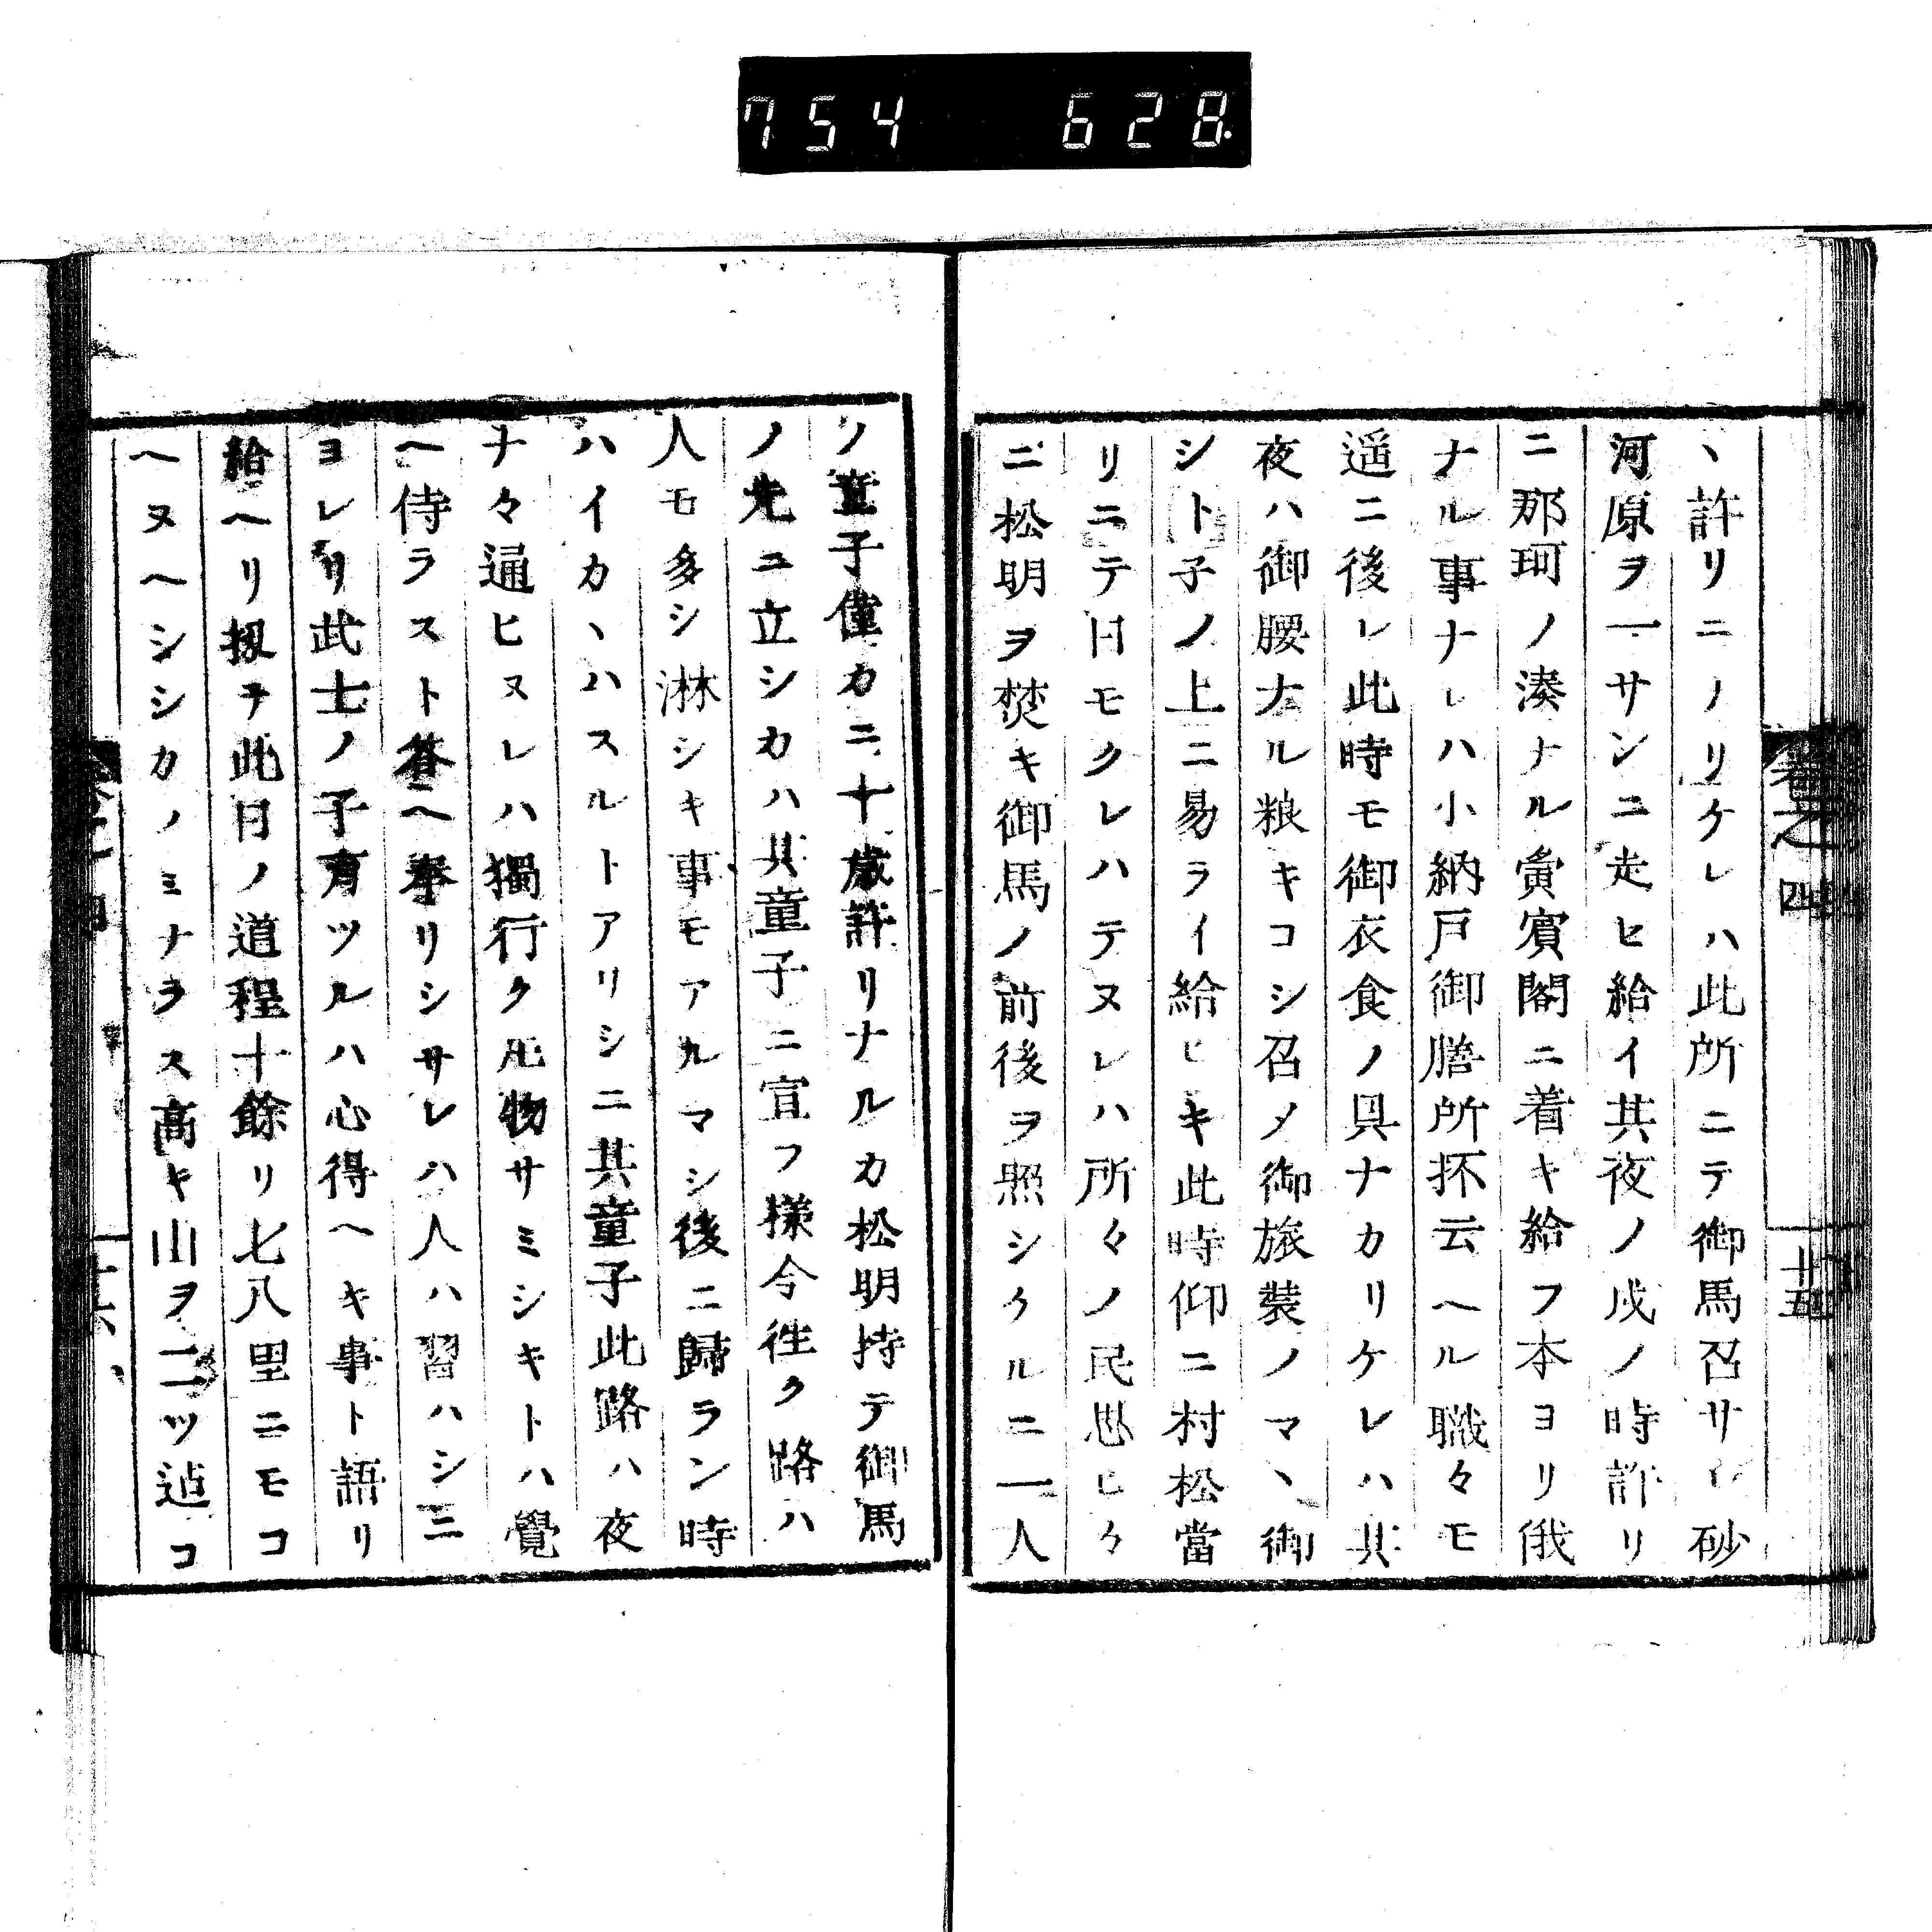 754 628.
卷之四
十五
ヽ許リニノリケレハ此所ニテ御馬召サレ砂
河原ヲ一サンニ走ヒ給イ其夜ノ戌ノ時許リ
ニ那珂ノ湊ナル夤賓閣ニ着キ給フ本ヨリ俄
ナル事ナレハ小納戸御膳所抔云ヘル職々モ
遥ニ後レ此時モ御衣食ノ具ナカリケレハ其
夜ハ御腰ナル粮キコシ召メ御旅装ノマヽ御
シト子ノ上ニ易ライ給ヒキ此時仰ニ村松當
リニテ日モクレハテヌレハ所々ノ民思ヒク
ニ松明ヲ焚キ御馬ノ前後ヲ照シケルニ一人
ノ童子僅カニ十歳許リナルカ松明持テ御馬
ノ先ニ立シカハ其童子ニ宣フ様今往ク路ハ
人モ多シ淋シキ事モアルマシ後ニ歸ラン時
ハイカヽハスルトアリシニ其童子此路ハ夜
ナ々通ヒヌレハ獨行ク𪜈物サミシキトハ覺
ヘ侍ラスト荅ヘ奉リシサレハ人ハ習ハシ三
ヨレリ武士ノ子育ツルハ心得ヘキ事ト語リ
給ヘリ扨テ此日ノ道程十餘リ七八里ニモコ
ヘヌヘシシカノミナラス高キ山ヲ二ツ迠コ